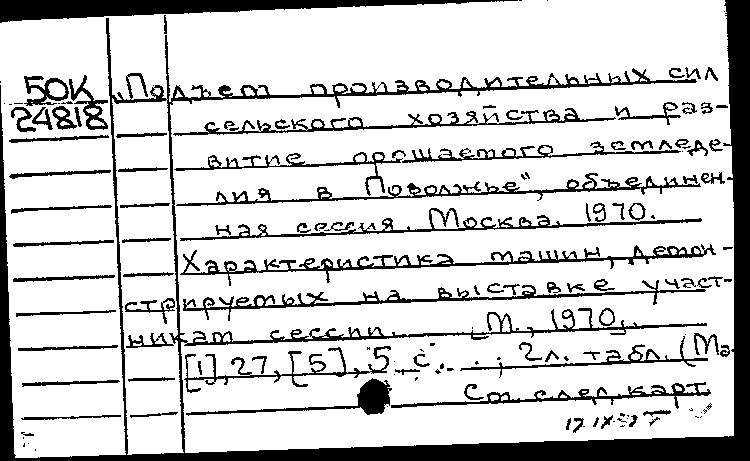 50К
24818
„Подъем производительных сил
сельского хозяйства и раз-
витие орошаемого земледе-
лия в Поволжье", объединен-
ная сессия. Москва. 1970.
Характеристика машин, демон-
стрируемых на выставке участ-
никам сессии. [М., 1970].
[1], 27, [5], 5 с. ; 2 л. табл. (Ма-
См. след. карт.